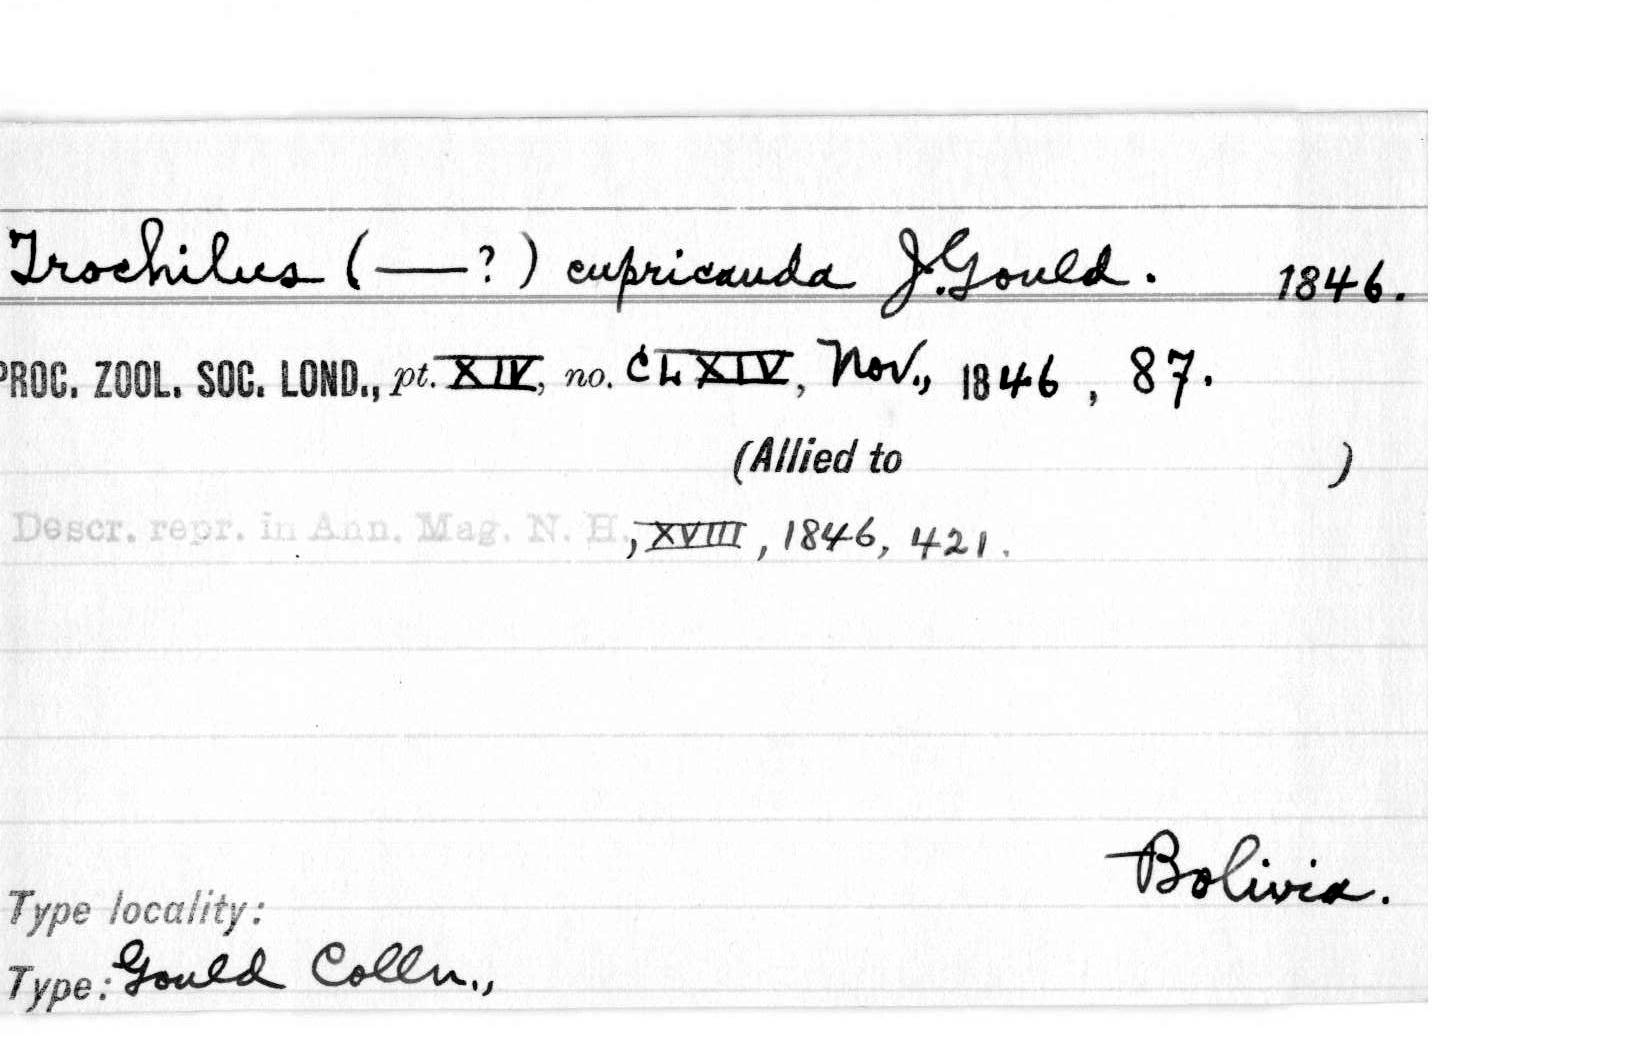 Trochilus (—?) cupricauda J. Gould. 1846.
PROC. ZOOL. SOC. LOND., pt. XIV, no. CLXIV, Nov., 1846, 87.
(Allied to )
Descr. repr. in Ann. Mag. N. H., XVIII, 1846, 421.
Bolivia.
Type locality:
Type: Gould Colln.,